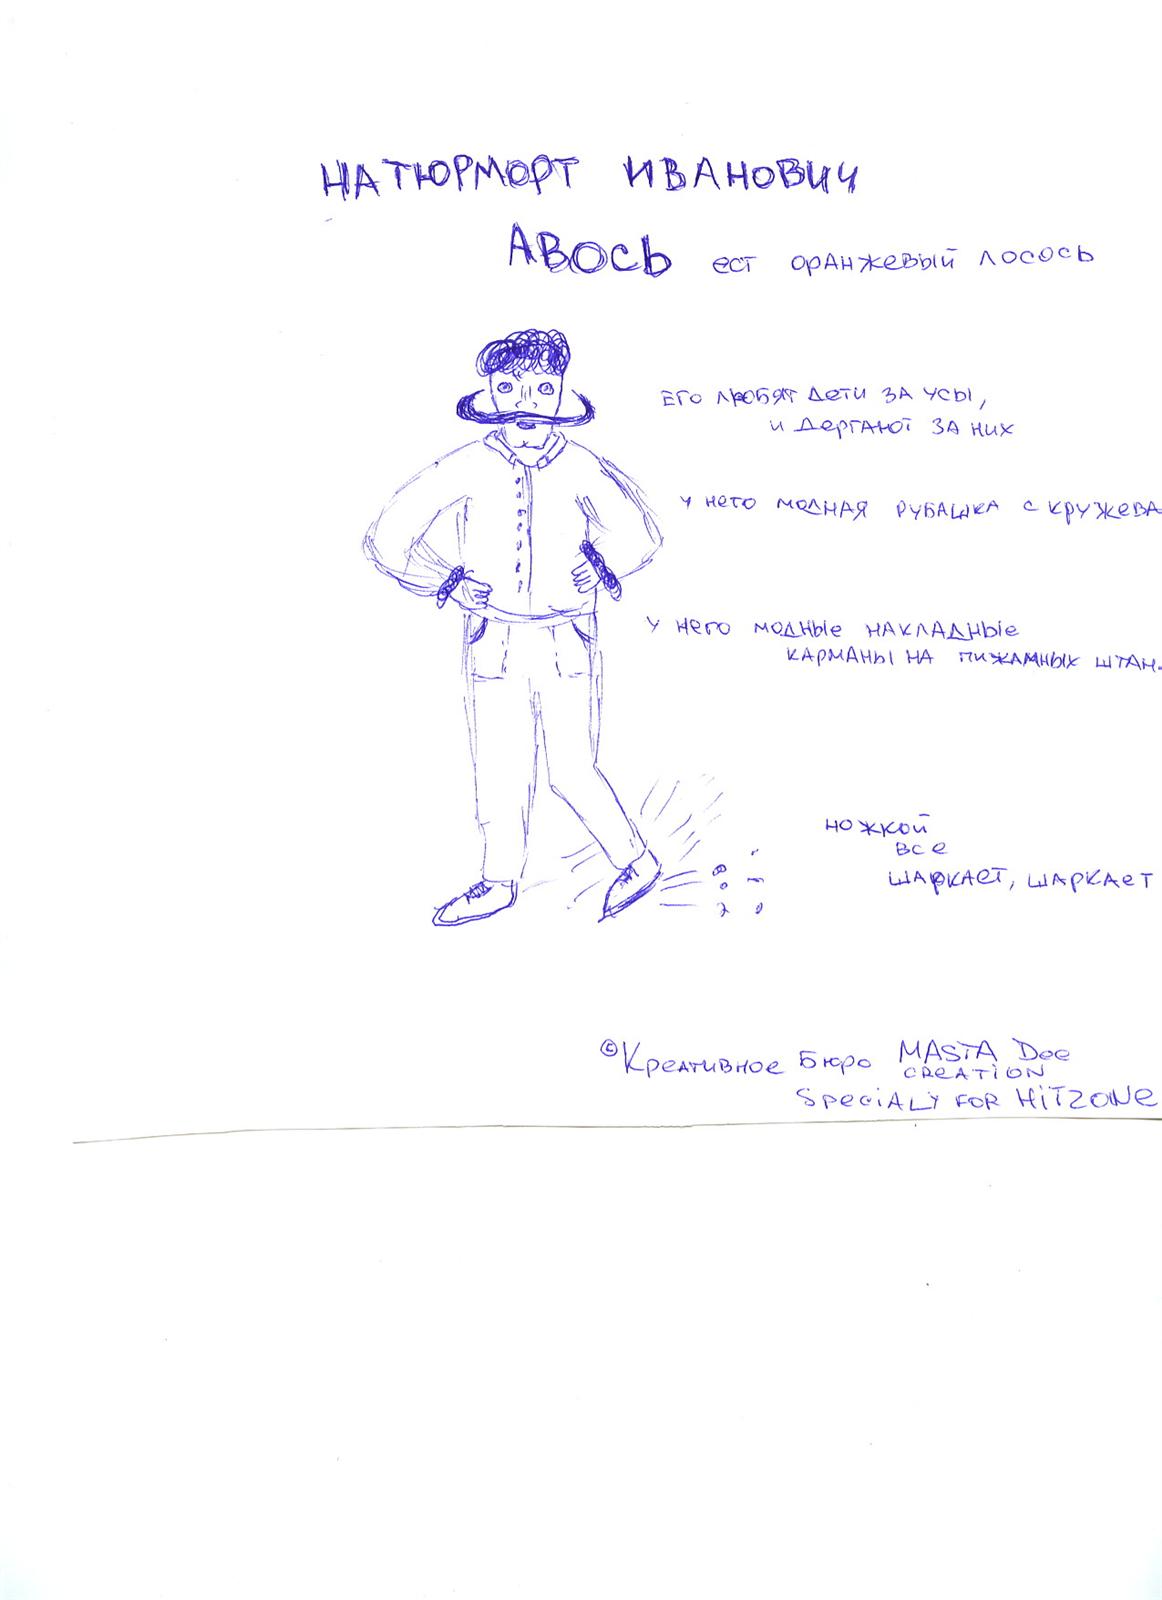 НАТЮРМОРТ ИВАНОВИЧ
АВОСЬ ест оранжевый лосось
Его любят дети за усы,
и дергают за них
У него модная рубашка с кружева
У него модные накладные
карманы на пижамных штан
ножкой
все
шаркает, шаркает
©Креативное Бюро MASTA Dee
CREATION
SPECIALY FOR HITZONE